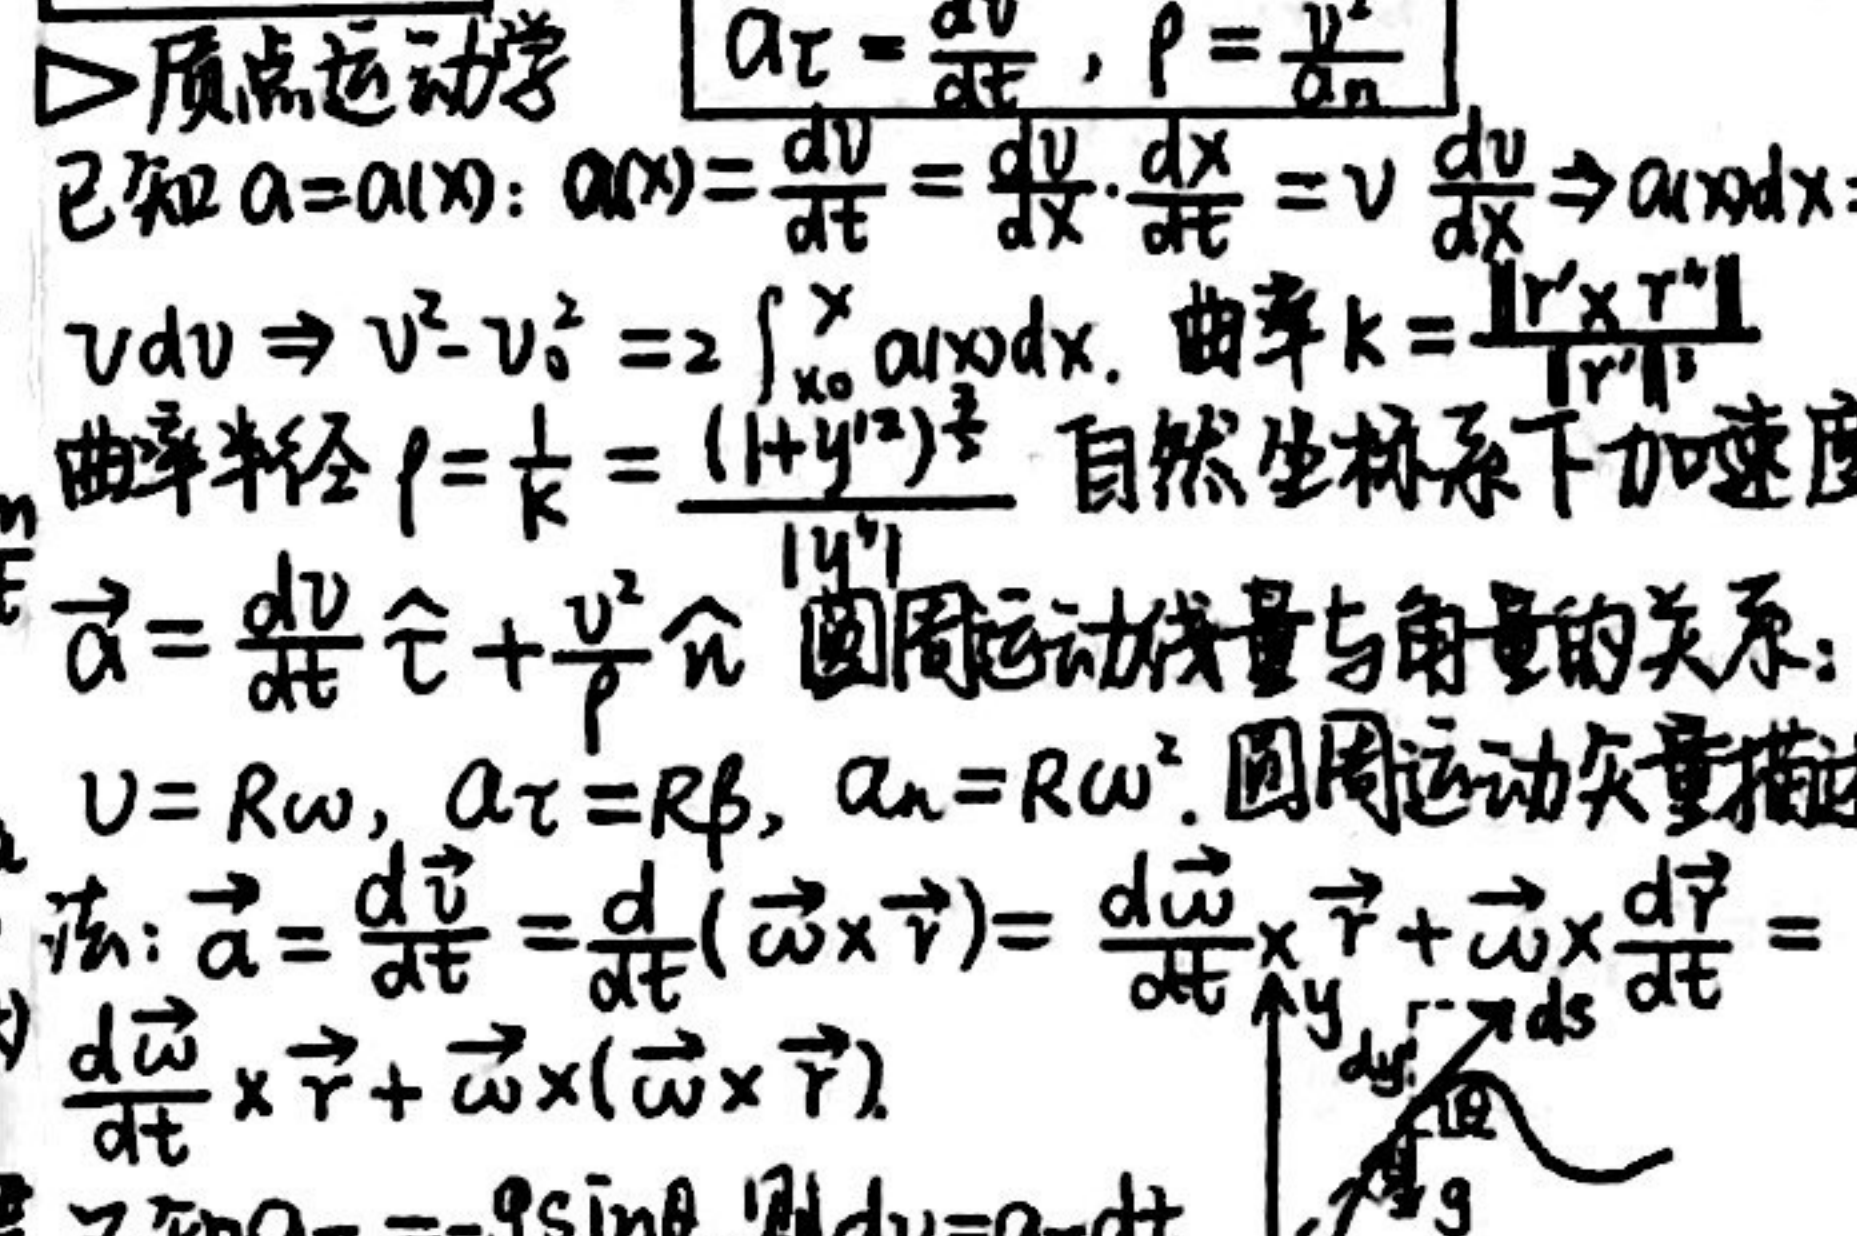 ▷质点运动学
aτ = dv/dt , ρ = v²/an
已知 a=a(x): a(x)= dv/dt = dv/dx · dx/dt = v dv/dx ⇒ a(x)dx=
vdv ⇒ v²-v₀² =2 ∫_{x₀}^{x} a(x)dx. 曲率 k = ‖r'×r''‖/‖r'‖³
曲率半径 ρ = 1/k = (1+y'²)^{3/2}/|y''| 自然坐标系下加速度
a⃗ = dv/dt τ̂ + v²/ρ n̂ 圆周运动线量与角量的关系:
v = Rω, aτ =Rβ, an =Rω². 圆周运动矢量描述
法: a⃗ = dv⃗/dt = d/dt (ω⃗×r⃗)= dω⃗/dt × r⃗ + ω⃗× dr⃗/dt =
dω⃗/dt × r⃗ + ω⃗ ×(ω⃗ × r⃗).
y
ds
dy
θ
g
=-gsinθ 则dv=aτdt